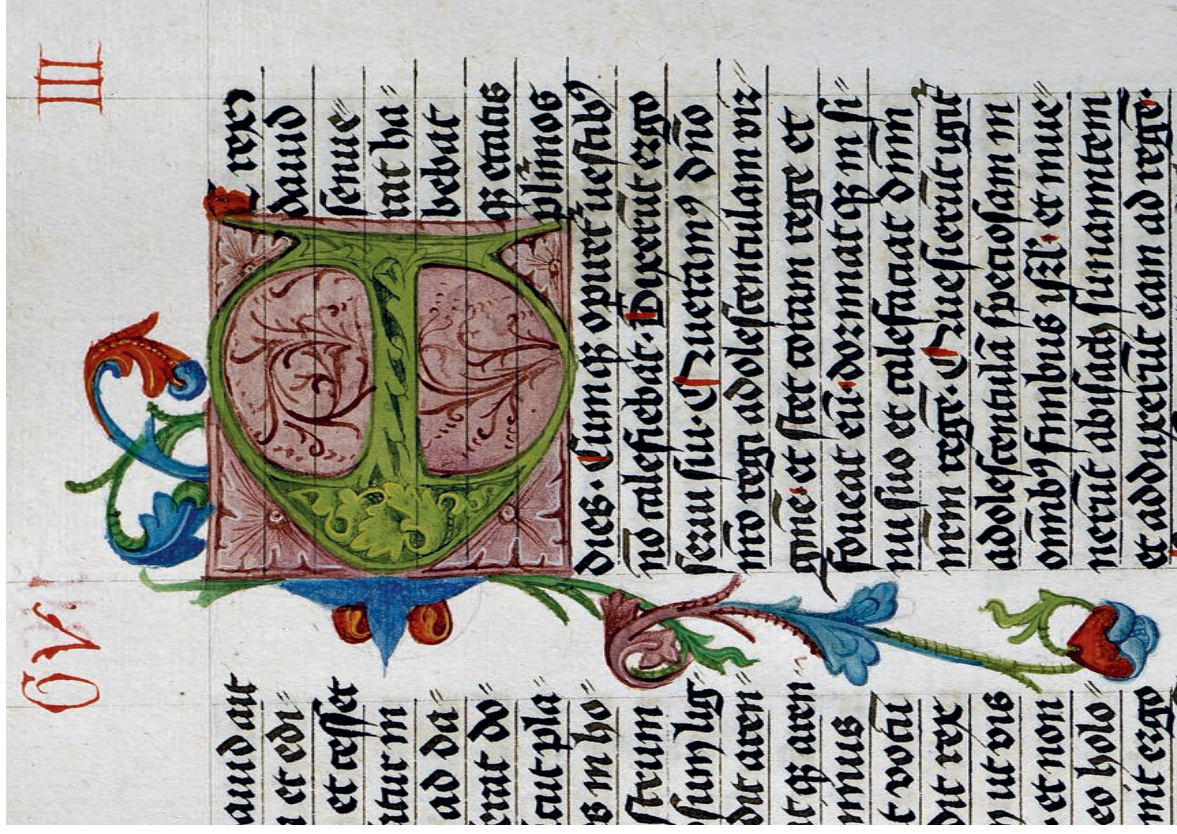 GV III
auid ait
a et edi=
et cesset
atur in
ad da=
erat do=
icut pla=
in ho=
strum
ssum lig=
dit aren=
at qꝫ aren
nimus
t votū
dit rex
ut vis
et non
eo holo=
mit ergo
Et rex
dauid
senue=
rat ha=
bebat
qꝫ etatis
pl̄imos
dies. Cumqꝫ opiret᷑ vestibꝰ
nō calefiebat. Dixerūt ergo
serui sui. Queramꝰ dn̄o
nr̄o regi adolescentulam vir=
ginē: et stet coram rege et
foueat eū: dormiatqꝫ in si=
nu suo et calefaciat dn̄m
nr̄m regē. Quesierūt igit᷑
adolescentulā speciosam in
om̄ibꝰ finibus isrl̄. et inue=
nerūt abisach sunamitem
et adduxerūt eam ad regē.